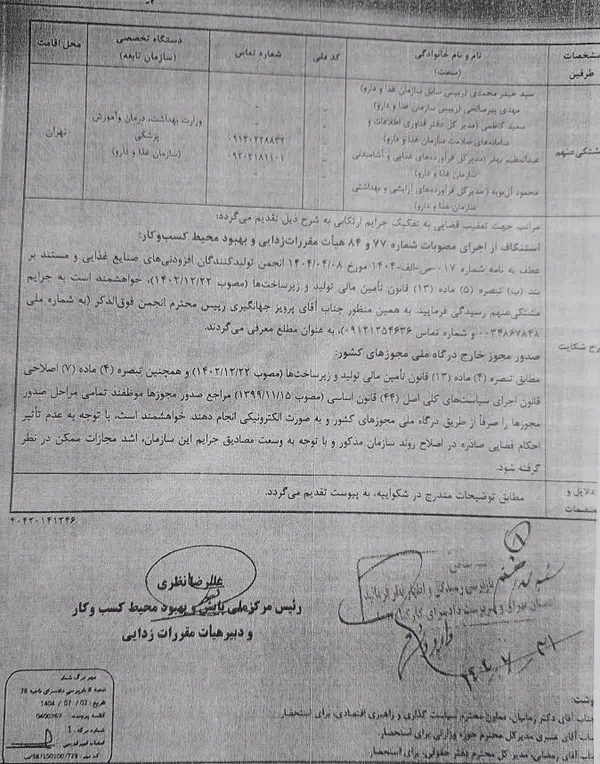 مشخصات طرفین
نام و نام خانوادگی (سمت)
کد ملی
شماره تماس
دستگاه تخصصی (سازمان تابعه)
محل اقامت
مشتکی‌عنهم
سید حیدر محمدی (رییس سابق سازمان غذا و دارو)
مهدی پیرصالحی (رییس سازمان غذا و دارو)
سعید کاظمی (مدیر کل دفتر فناوری اطلاعات و
سامانه‌های سلامت سازمان غذا و دارو)
عبدالعظیم بهفر (مدیرکل فرآورده‌های غذایی و آشامیدنی
سازمان غذا و دارو)
محمود آل‌بویه (مدیرکل فرآورده‌های آرایشی و بهداشتی
سازمان غذا و دارو)
وزارت بهداشت، درمان وآموزش
پزشکی
(سازمان غذا و دارو)
تهران
مراتب جهت تعقیب قضایی به تفکیک جرایم ارتکابی به شرح ذیل تقدیم می‌گردد:
استنکاف از اجرای مصوبات شماره ۷۷ و ۸۴ هیأت مقررات‌زدایی و بهبود محیط کسب‌وکار:
عطف به نامه شماره ۱۷-ص-الف-۱۴۰۴ مورخ ۱۴۰۴/۰۴/۰۸ انجمن تولیدکنندگان افزودنی‌های صنایع غذایی و مستند بر
بند (ب) تبصره (۵) ماده (۱۳) قانون تأمین مالی تولید و زیرساخت‌ها (مصوب ۱۴۰۲/۱۲/۲۲)، خواهشمند است به جرایم
مشتکی‌عنهم رسیدگی فرمایید. به همین منظور جناب آقای پرویز جهانگیری رییس محترم انجمن فوق‌الذکر (به شماره ملی
و شماره تماس ۰۹۱۲۱۲۵۴۶۳۶)، به عنوان مطلع معرفی می‌گردند.
صدور مجوز خارج درگاه ملی مجوزهای کشور:
مطابق تبصره (۴) ماده (۱۳) قانون تأمین مالی تولید و زیرساخت‌ها (مصوب ۱۴۰۲/۱۲/۲۲) و همچنین تبصره (۴) ماده (۷) اصلاحی
قانون اجرای سیاست‌های کلی اصل (۴۴) قانون اساسی (مصوب ۱۳۹۹/۱۱/۱۵) مراجع صدور مجوزها موظفند تمامی مراحل صدور
مجوزها را صرفاً از طریق درگاه ملی مجوزهای کشور و به صورت الکترونیکی انجام دهند. خواهشمند است، با توجه به عدم تأثیر
احکام قضایی صادره در اصلاح روند سازمان مذکور و با توجه به وسعت مصادیق جرایم این سازمان، اشد مجازات ممکن در نظر
گرفته شود.
شرح شکایت
دلایل و
منضمات
مطابق توضیحات مندرج در شکواییه، به پیوست تقدیم می‌گردد.
علیرضا نظری
رئیس مرکز ملی پایش و بهبود محیط کسب و کار
و دبیر هیأت مقررات زدایی
مهر برگ شمار
تاریخ: 02 / 07 / 1404
شماره برگ: 1
جناب آقای دکتر زمانیان، معاون محترم سیاست گذاری و راهبری اقتصادی، برای استحضار
مدیرکل محترم حوزه وزارتی برای استحضار.
جناب آقای رمضانی، مدیر کل محترم دفتر حقوقی، برای استحضار.